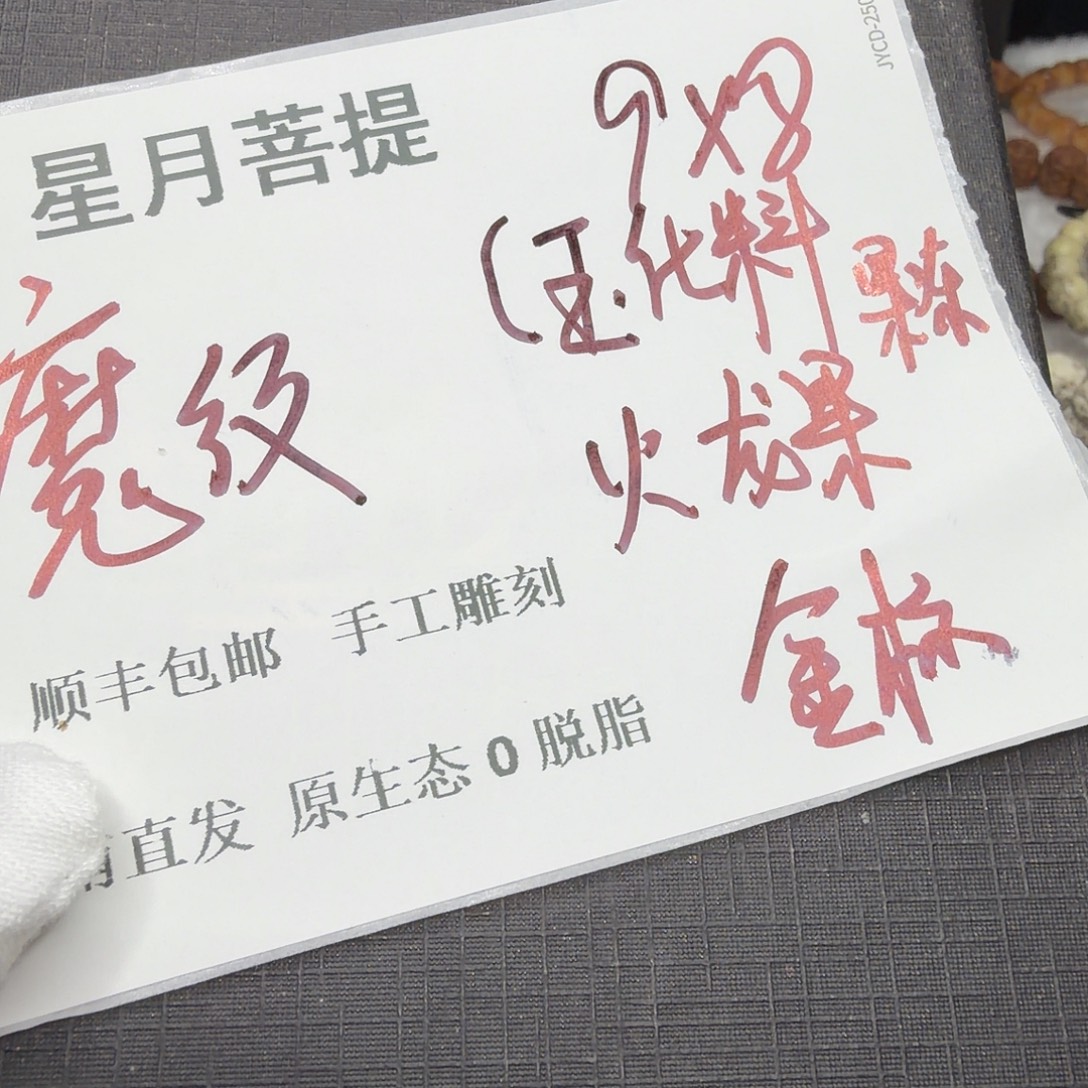 JYCD-250
星月菩提
9x8
(玉化料
果冻
魔纹
火龙果
金标
顺丰包邮 手工雕刻
直发 原生态0脱脂